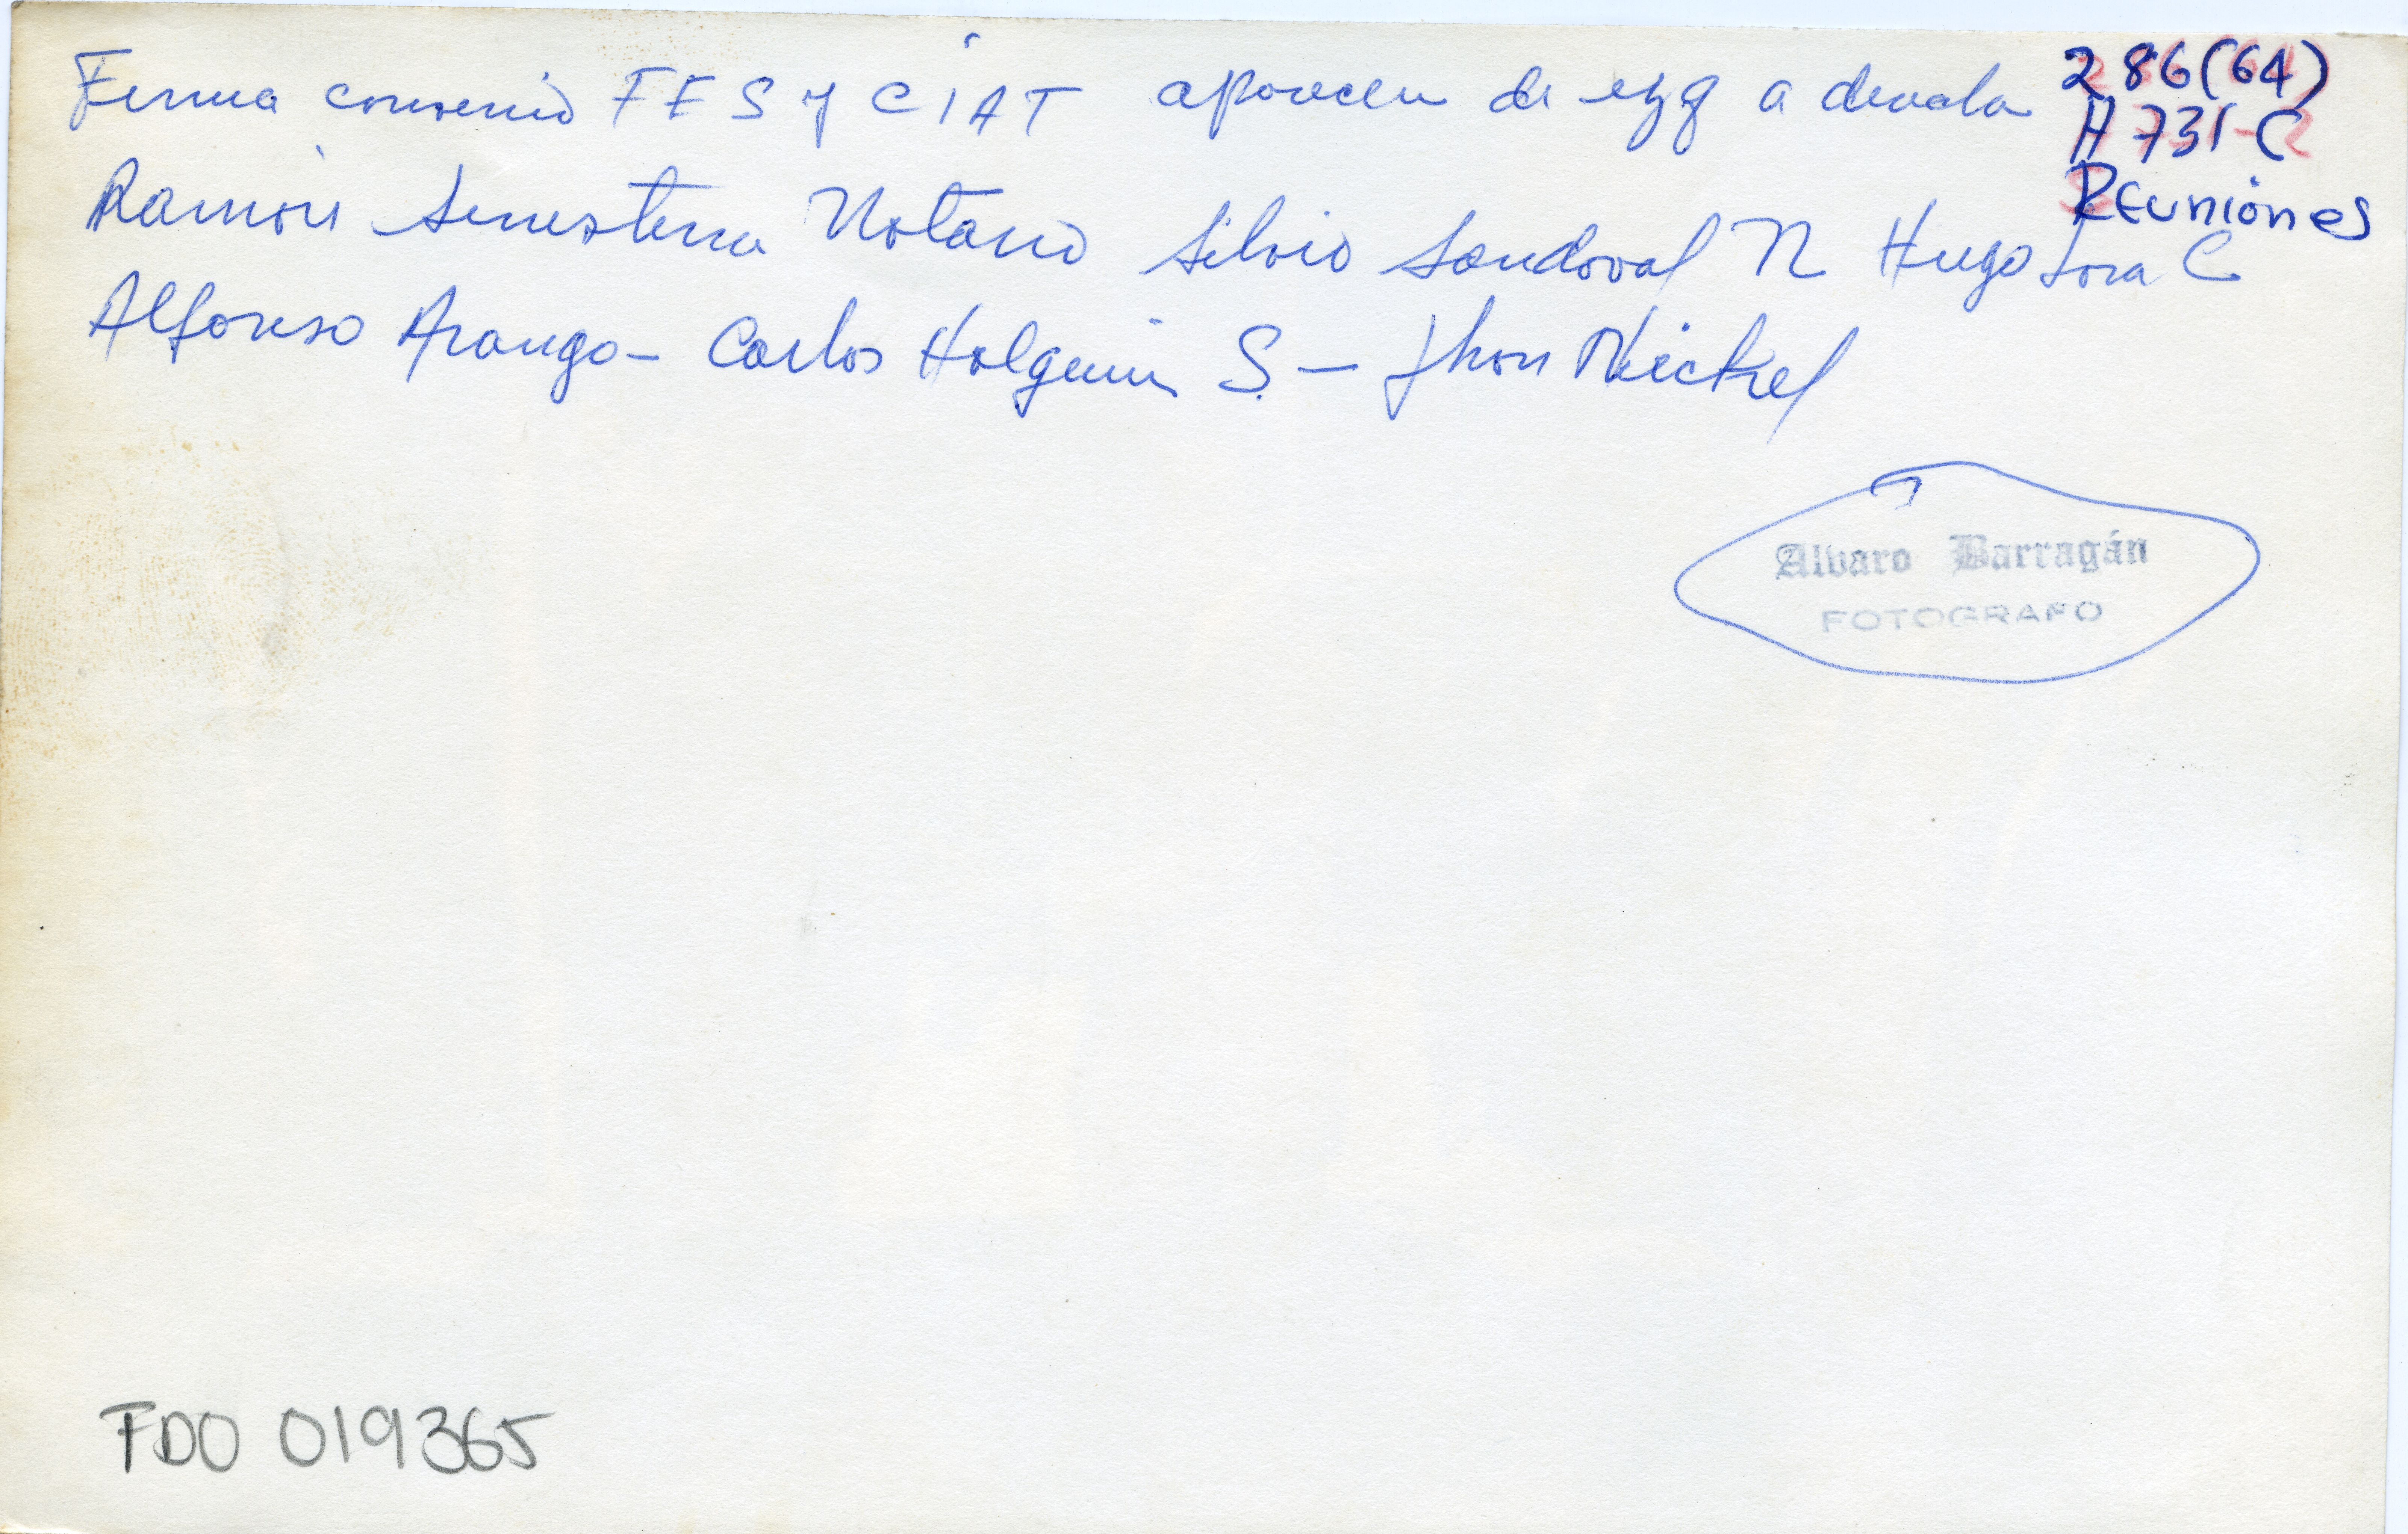 Firma convenio FES y CIAT aparecen de izq a derecha
Ramon Sinisterra Notario Silvio Sandoval N Hugo Lora C
Alfonso Arango - Carlos Holguin S. - Jhon Nickel
286(64)
H 731-C
REuniónes
Alvaro Barragán
FOTOGRAFO
FDO 019365